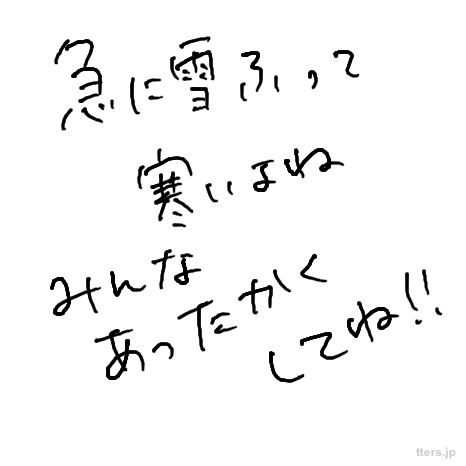 急に雪ふって
寒いよね
みんな
あったかく
してね!!
tters.jp